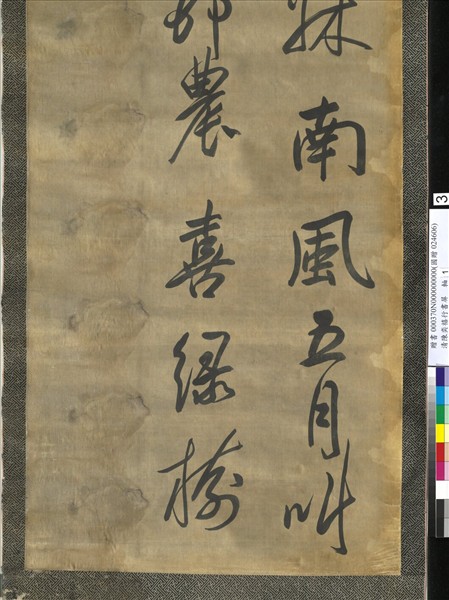 南風五月叫
農喜綠
3
贈書 000370N000000000(國贈 024606)
清陳奕禧行書屏 軸:1